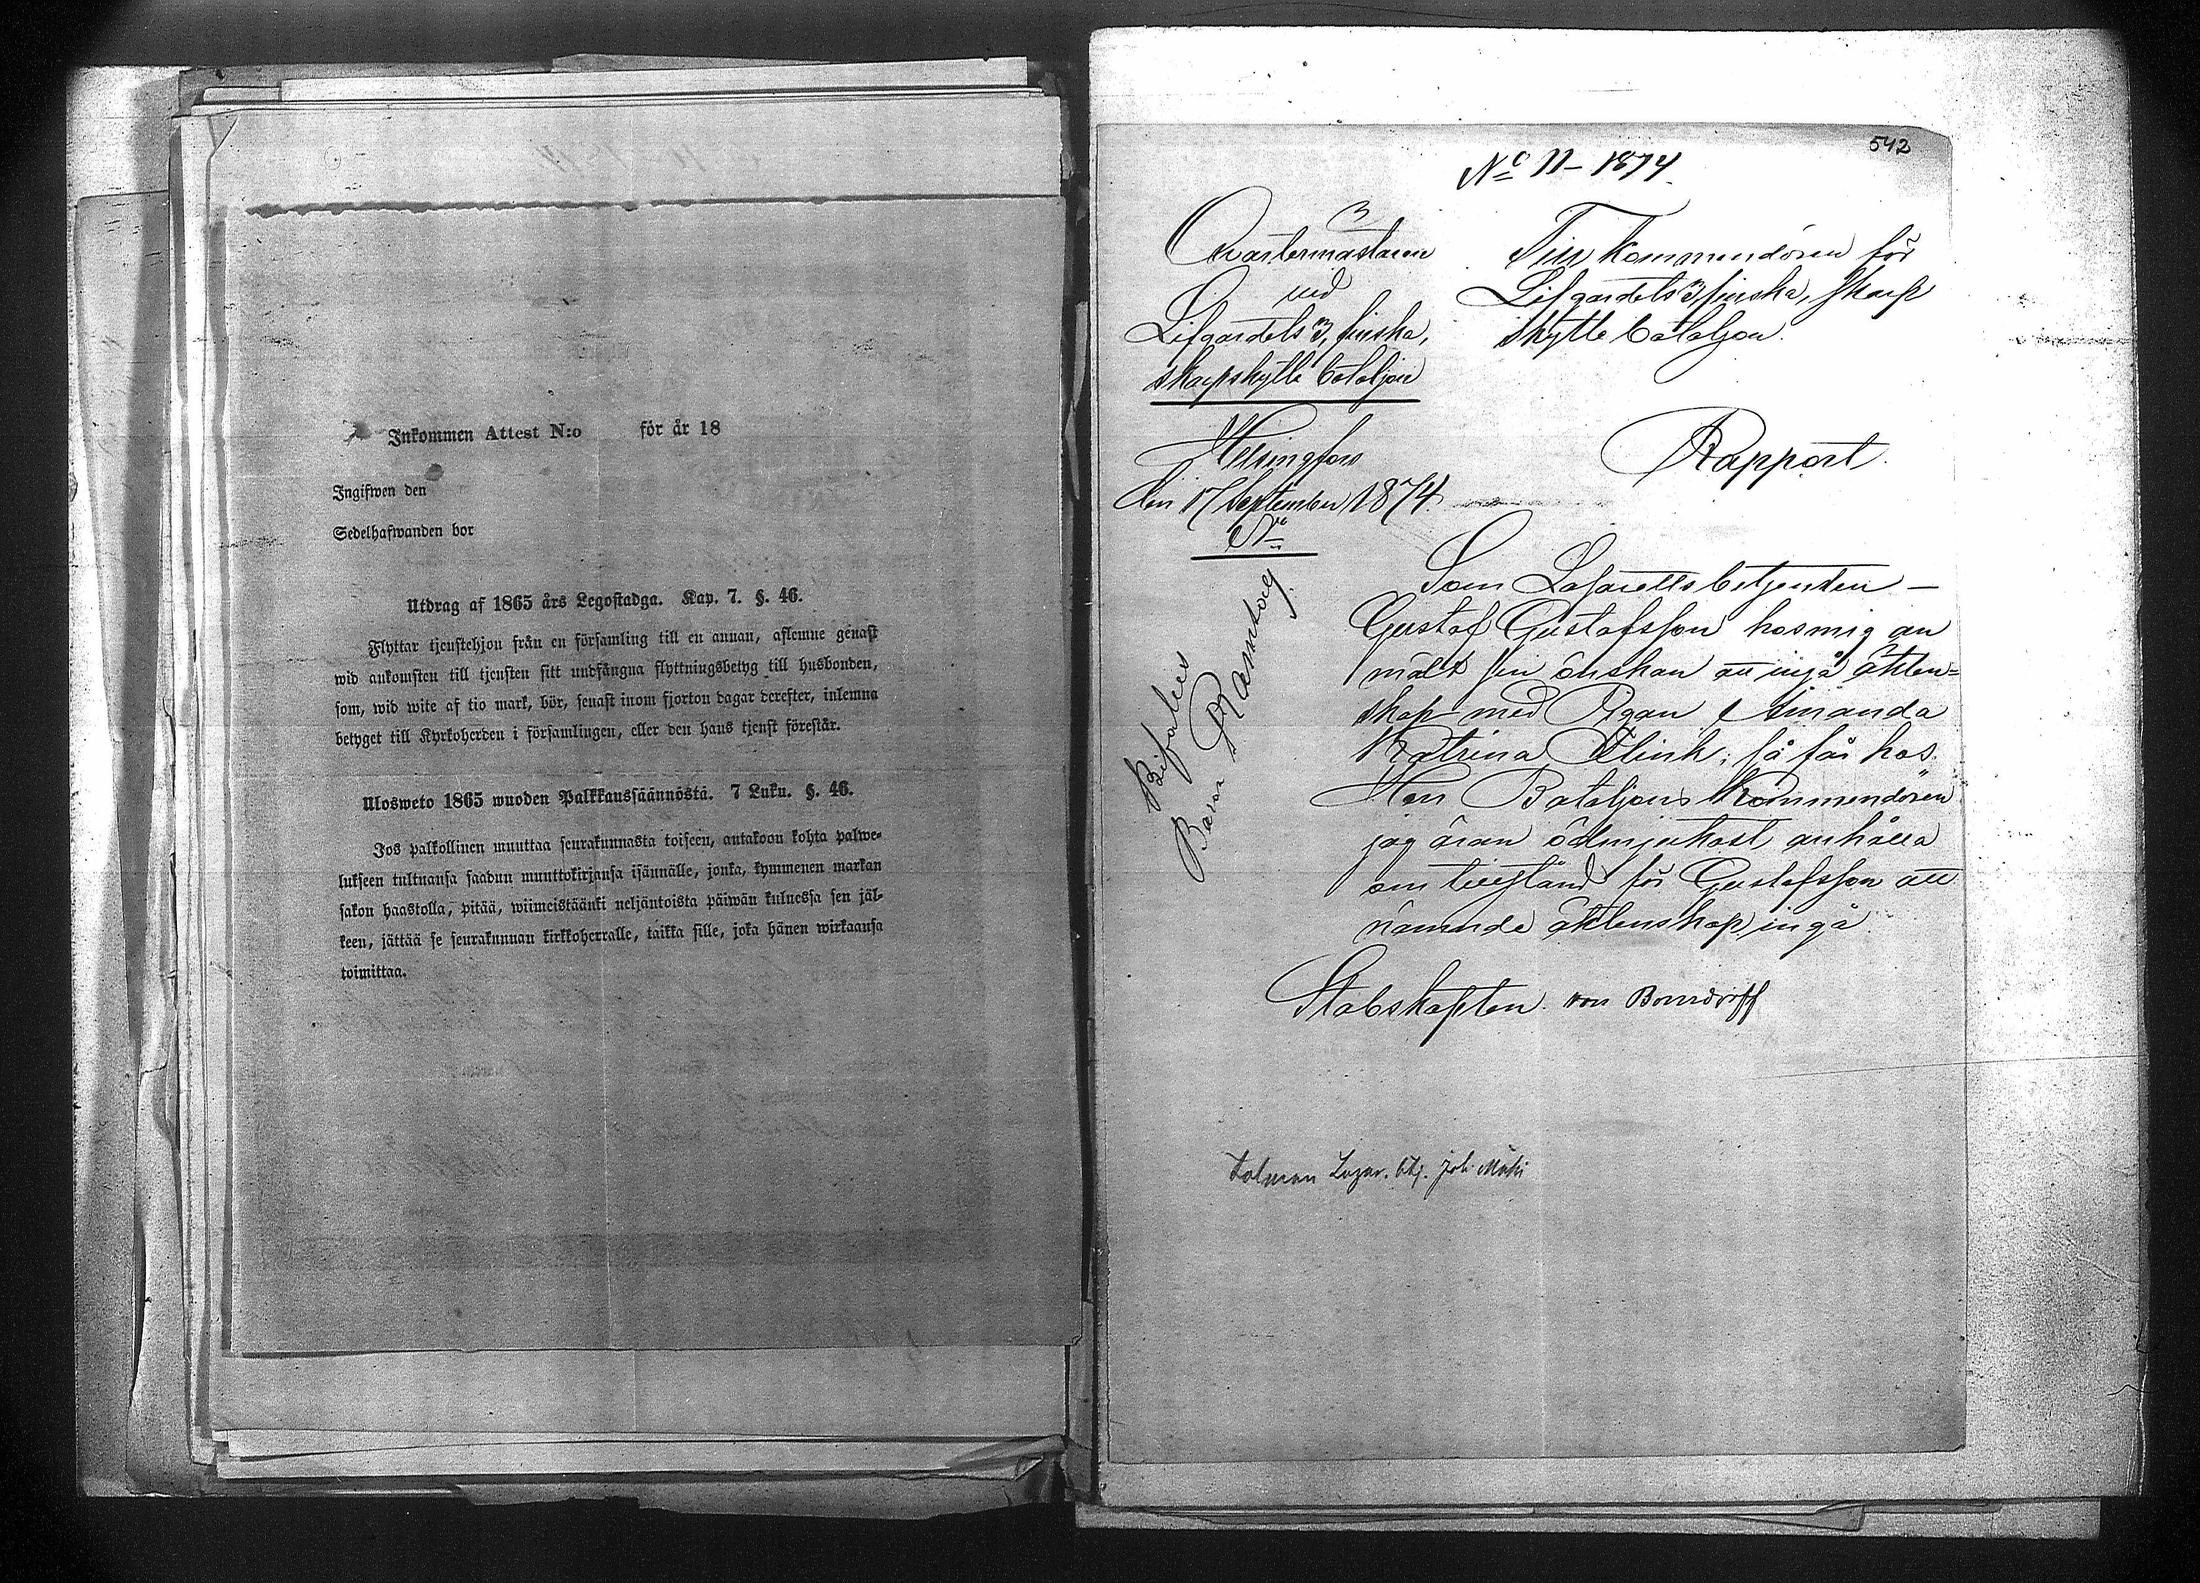 Inkommen Attest N:o för år 18
Ingifwen den
Sedelhafwanden bor
Utdrag af 1865 års Legostadga. Kap. 7. §. 46.
Flyttar tjenstehjon från en församling till en annan, aflemne genast
wid ankomsten till tjensten sitt undfångna flyttningsbetyg till husbonden,
som, wid wite af tio mark, bör, senast inom fjorton dagar derefter, inlemna
betyget till Kyrkoherden i församlingen, eller den hans tjenst förestår.
Ulosweto 1865 wuoden Palkkaussäännöstä. 7 Luku. §. 46.
Jos palkollinen muuttaa seurakunnasta toiseen, antakoon kohta palwe-
lukseen tultuansa saadun muuttokirjansa isännälle, jonka, kymmenen markan
sakon haastolla, pitää, wiimeistäänki neljäntoista päiwän kuluessa sen jäl-
keen, jättää se seurakunnan kirkkoherralle, taikka sille, joka hänen wirkaansa
toimittaa.
542
No 11-1874
Qvartermästaren
vid
Lifgardets 3, finska,
skarpskytte bataljon
Helsingfors
den 17 September 1874
No
Till Kommendören för
Lifgardets 3, finska, skarp
skytte bataljon.
Rapport.
Som Lasarettsbetjenten –
Gustaf Gustafsson hos mig an
mält sin önskan att ingå äkten=
skap med Pigan Amanda
Katrina Flink; så får hos
Herr Bataljons Kommendören
jag äran ödmjukast anhålla
om tillstånd för Gustafsson att
nämnde äktenskap ingå.
Stabskapten von Bonsdorff
Bifalles
Baron Ramsay
Talman Lazar. btj. Joh. Mäki